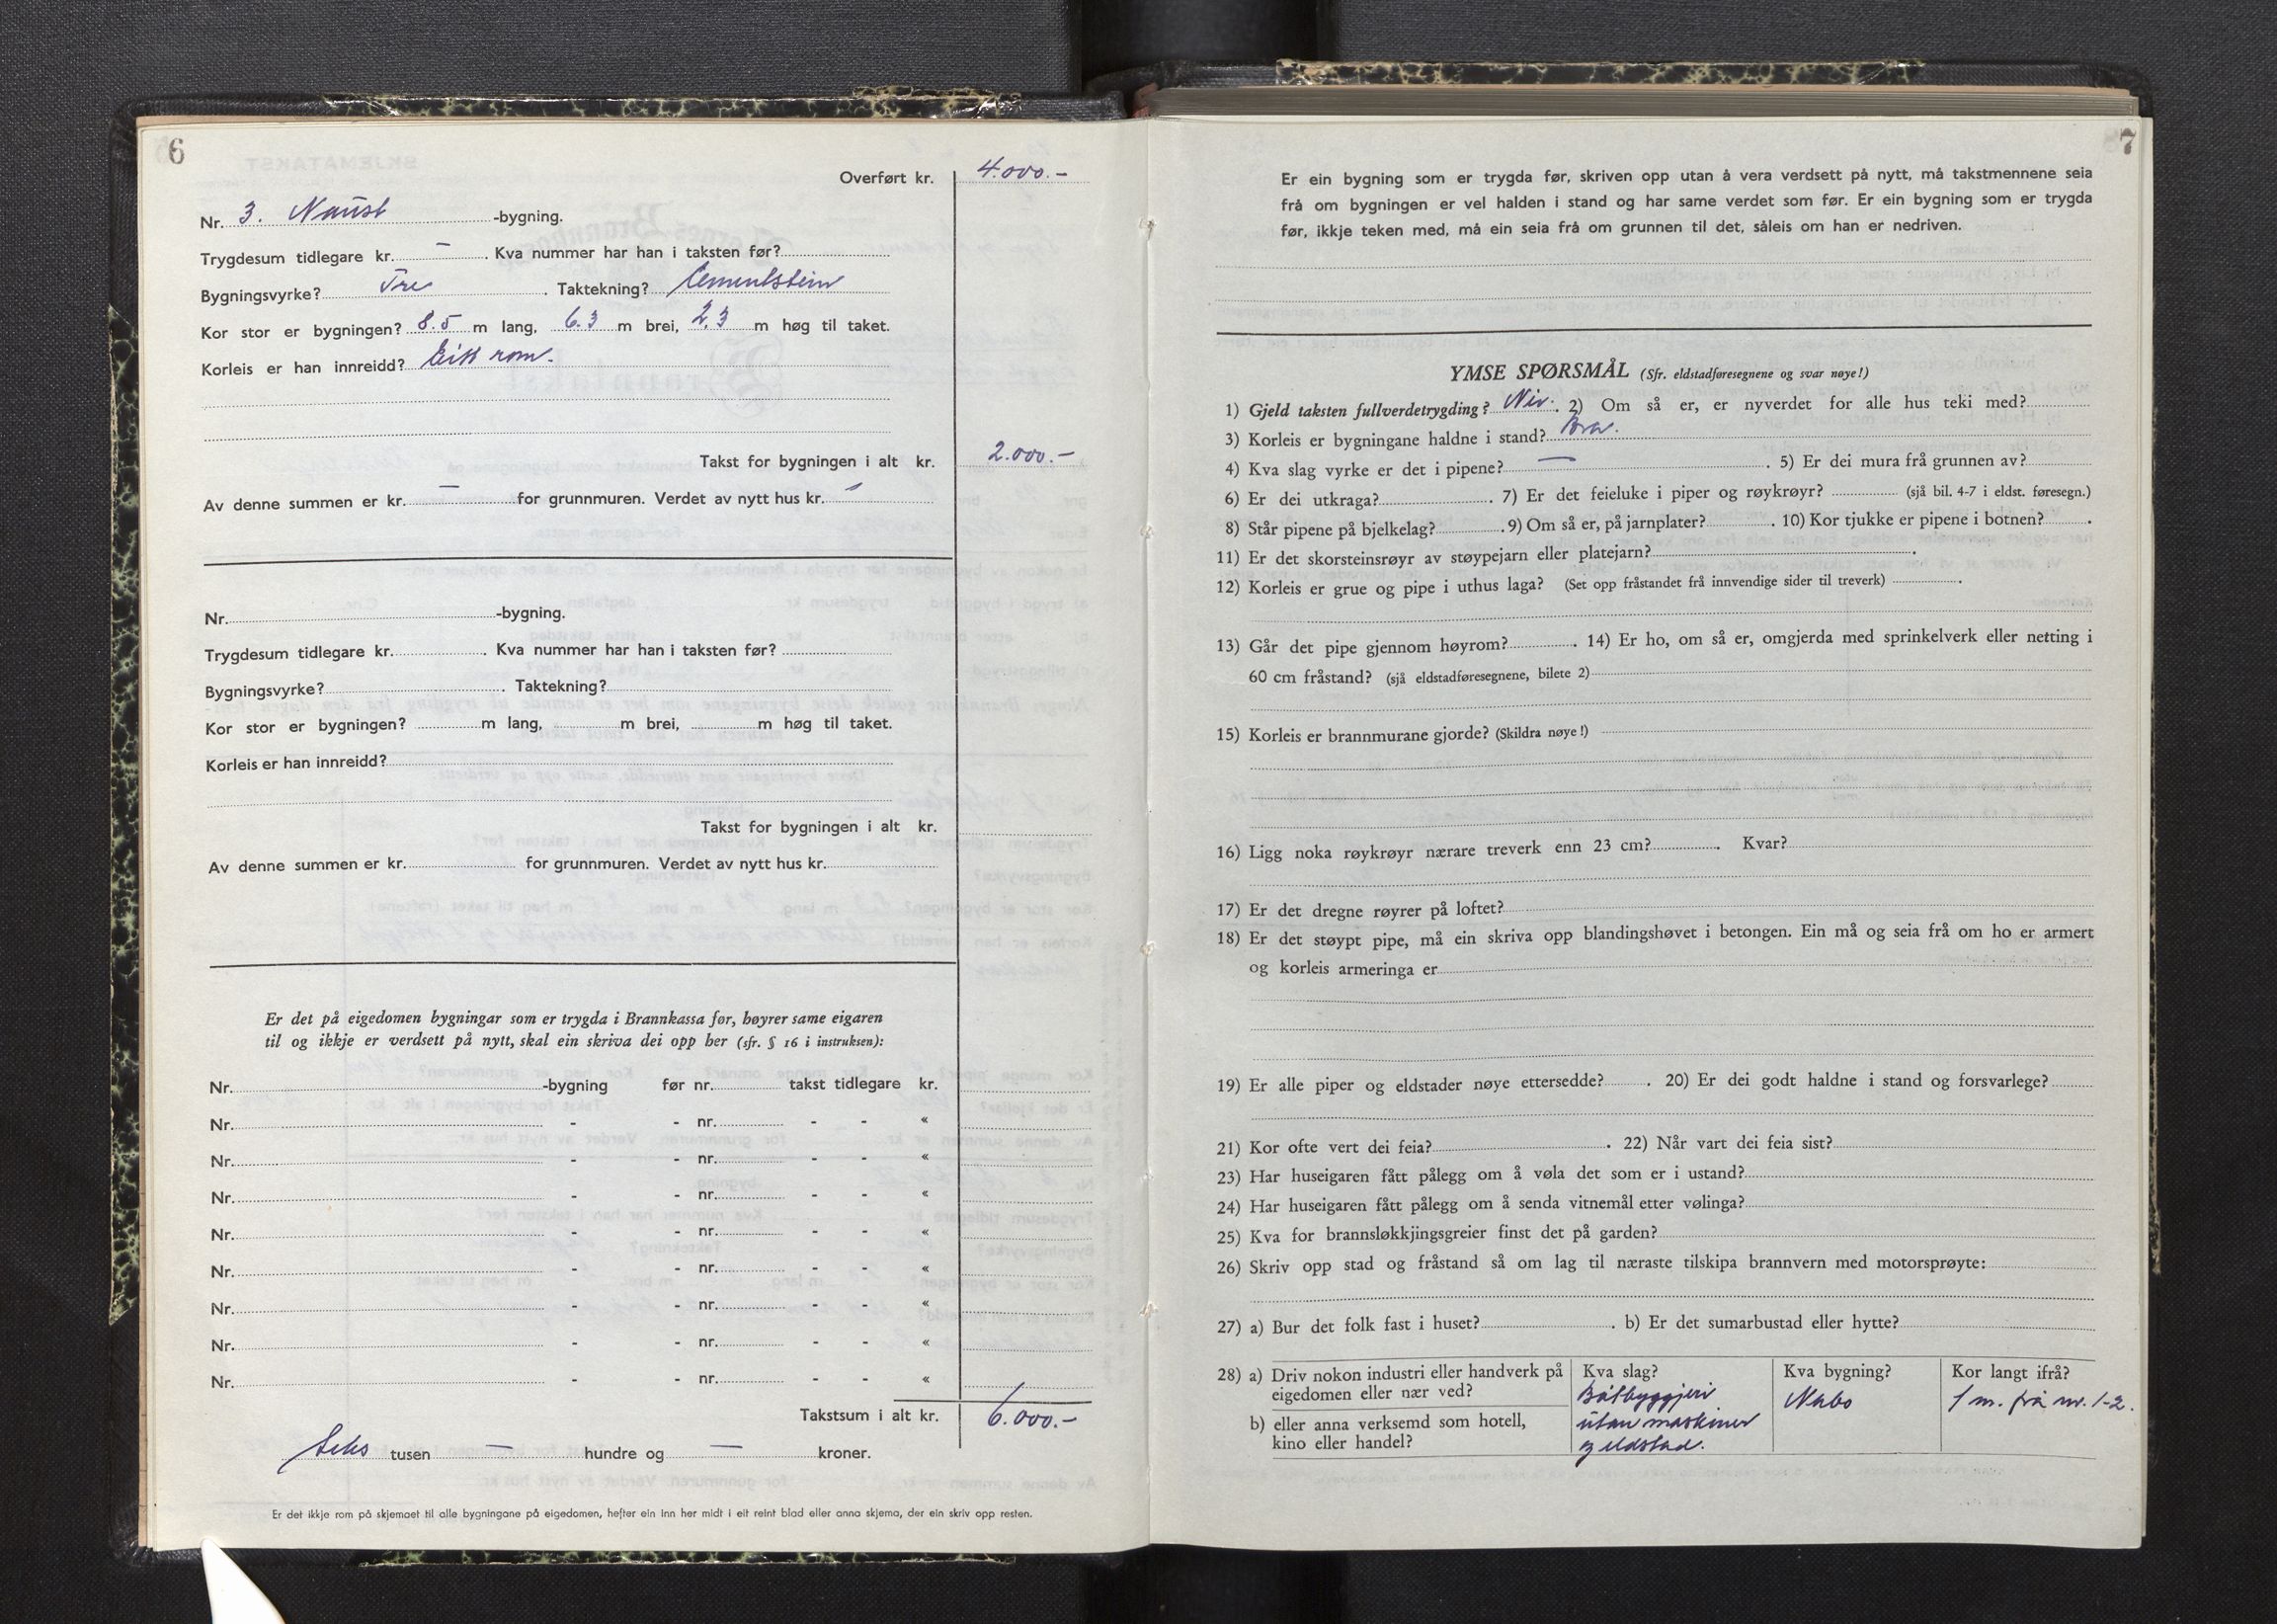 6
Overført kr. 4.000.-
Nr. 3. Naust -bygning.
Trygdesum tidlegare kr. — . Kva nummer har han i taksten før?
Bygningsvyrke? Tre . Taktekning? Cementstein
Kor stor er bygningen? 8.5 m lang, 6.3 m brei, 2,3 m høg til taket.
Korleis er han innreidd? Eitt rom.
Takst for bygningen i alt kr. 2.000.-
Av denne summen er kr. — for grunnmuren. Verdet av nytt hus kr. —
Nr. -bygning.
Trygdesum tidlegare kr. . Kva nummer har han i taksten før?
Bygningsvyrke? . Taktekning?
Kor stor er bygningen? m lang, m brei, m høg til taket.
Korleis er han innreidd?
Takst for bygningen i alt kr.
Av denne summen er kr. for grunnmuren. Verdet av nytt hus kr.
Er det på eigedomen bygningar som er trygda i Brannkassa før, høyrer same eigaren
til og ikkje er verdsett på nytt, skal ein skriva dei opp her (sfr. § 16 i instruksen):
Nr. -bygning før nr. takst tidlegare kr.
Nr. - - nr. - - «
Nr. - - nr. - - «
Nr. - - nr. - - «
Nr. - - nr. - - «
Nr. - - nr. - - «
Nr. - - nr. - - «
Nr. - - nr. - - «
Nr. - - nr. - - «
Takstsum i alt kr. 6.000.-
Seks tusen — hundre og — kroner.
Er det ikkje rom på skjemaet til alle bygningane på eigedomen, hefter ein inn her midt i eit reint blad eller anna skjema, der ein skriv opp resten.
7
Er ein bygning som er trygda før, skriven opp utan å vera verdsett på nytt, må takstmennene seia
frå om bygningen er vel halden i stand og har same verdet som før. Er ein bygning som er trygda
før, ikkje teken med, må ein seia frå om grunnen til det, såleis om han er nedriven.
YMSE SPØRSMÅL (Sfr. eldstadføresegnene og svar nøye!)
1) Gjeld taksten fullverdetrygding? Nei. 2) Om så er, er nyverdet for alle hus teki med?
3) Korleis er bygningane haldne i stand? Bra.
4) Kva slag vyrke er det i pipene? — . 5) Er dei mura frå grunnen av?
6) Er dei utkraga? . 7) Er det feieluke i piper og røykrøyr? (sjå bil. 4-7 i eldst. føresegn.)
8) Står pipene på bjelkelag? . 9) Om så er, på jarnplater? . 10) Kor tjukke er pipene i botnen? .
11) Er det skorsteinsrøyr av støypejarn eller platejarn? .
12) Korleis er grue og pipe i uthus laga? (Set opp fråstandet frå innvendige sider til treverk) .
13) Går det pipe gjennom høyrom? . 14) Er ho, om så er, omgjerda med sprinkelverk eller netting i
60 cm fråstand? (sjå eldstadføresegnene, bilete 2)
15) Korleis er brannmurane gjorde? (Skildra nøye!)
16) Ligg noka røykrøyr nærare treverk enn 23 cm? . Kvar?
17) Er det dregne røyrer på loftet?
18) Er det støypt pipe, må ein skriva opp blandingshøvet i betongen. Ein må og seia frå om ho er armert
og korleis armeringa er
19) Er alle piper og eldstader nøye ettersedde? . 20) Er dei godt haldne i stand og forsvarlege?
21) Kor ofte vert dei feia? . 22) Når vart dei feia sist?
23) Har huseigaren fått pålegg om å vøla det som er i ustand?
24) Har huseigaren fått pålegg om å senda vitnemål etter vølinga?
25) Kva for brannsløkkjingsgreier finst det på garden?
26) Skriv opp stad og fråstand så om lag til næraste tilskipa brannvern med motorsprøyte:
27) a) Bur det folk fast i huset? . b) Er det sumarbustad eller hytte?
28) a) Driv nokon industri eller handverk på
eigedomen eller nær ved?
b) eller anna verksemd som hotell,
kino eller handel?
Kva slag?
Båtbyggjeri
utan maskiner
og eldstad.
Kva bygning?
Nabo
Kor langt ifrå?
1 m. frå nr. 1-2.